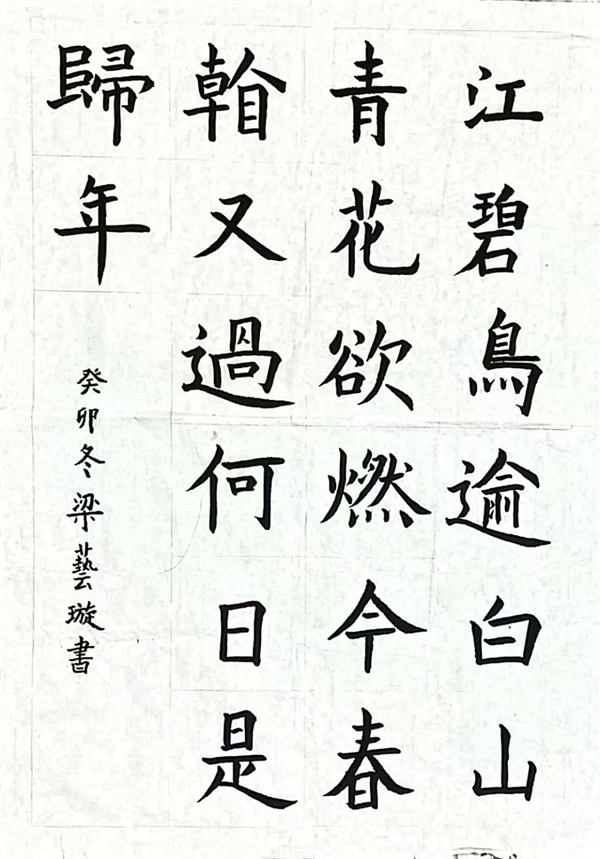 江碧鳥逾白山
青花欲燃今春
𥉼又過何日是
歸年
癸卯冬梁藝璇書